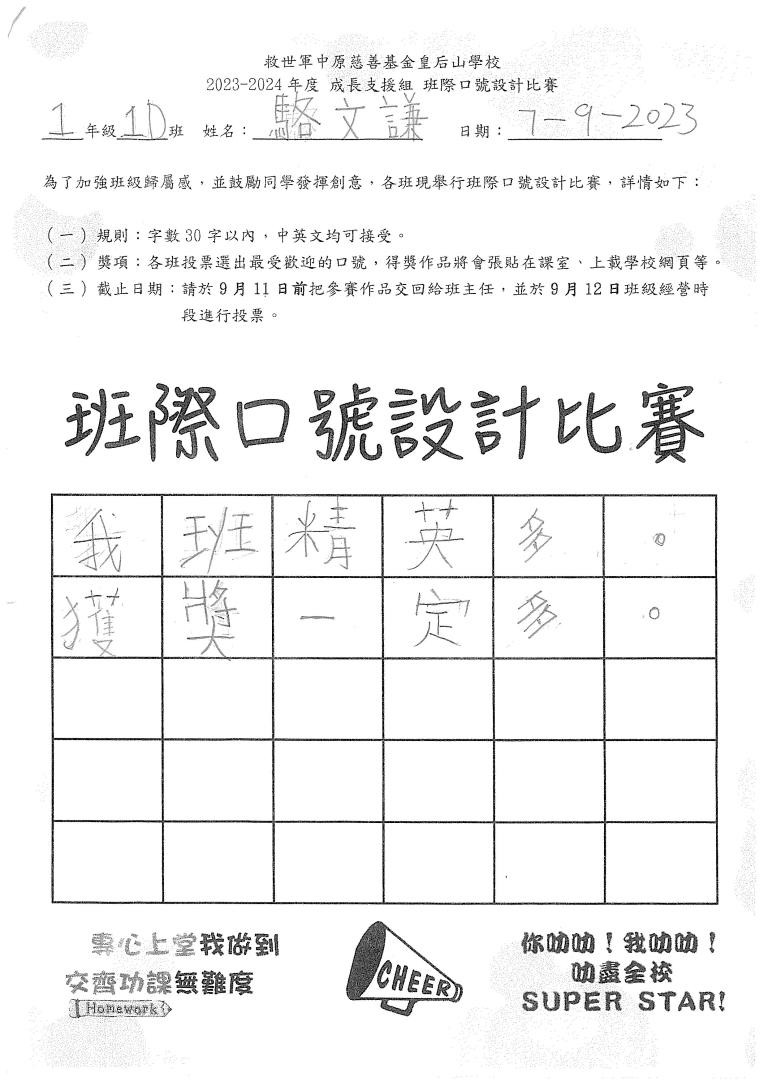 救世軍中原慈善基金皇后山學校
2023-2024 年度 成長支援組 班際口號設計比賽
1 年級 1D 班 姓名：駱文謙 日期：7-9-2023
為了加強班級歸屬感，並鼓勵同學發揮創意，各班現舉行班際口號設計比賽，詳情如下：
（一）規則：字數 30 字以內，中英文均可接受。
（二）獎項：各班投票選出最受歡迎的口號，得獎作品將會張貼在課室、上載學校網頁等。
（三）截止日期：請於 9 月 11 日前把參賽作品交回給班主任，並於 9 月 12 日班級經營時
段進行投票。
班際口號設計比賽
我班精英多。
獲獎一定多。
專心上堂我做到
交齊功課無難度
Homework
CHEER
你叻叻！我叻叻！
叻盡全校
SUPER STAR!